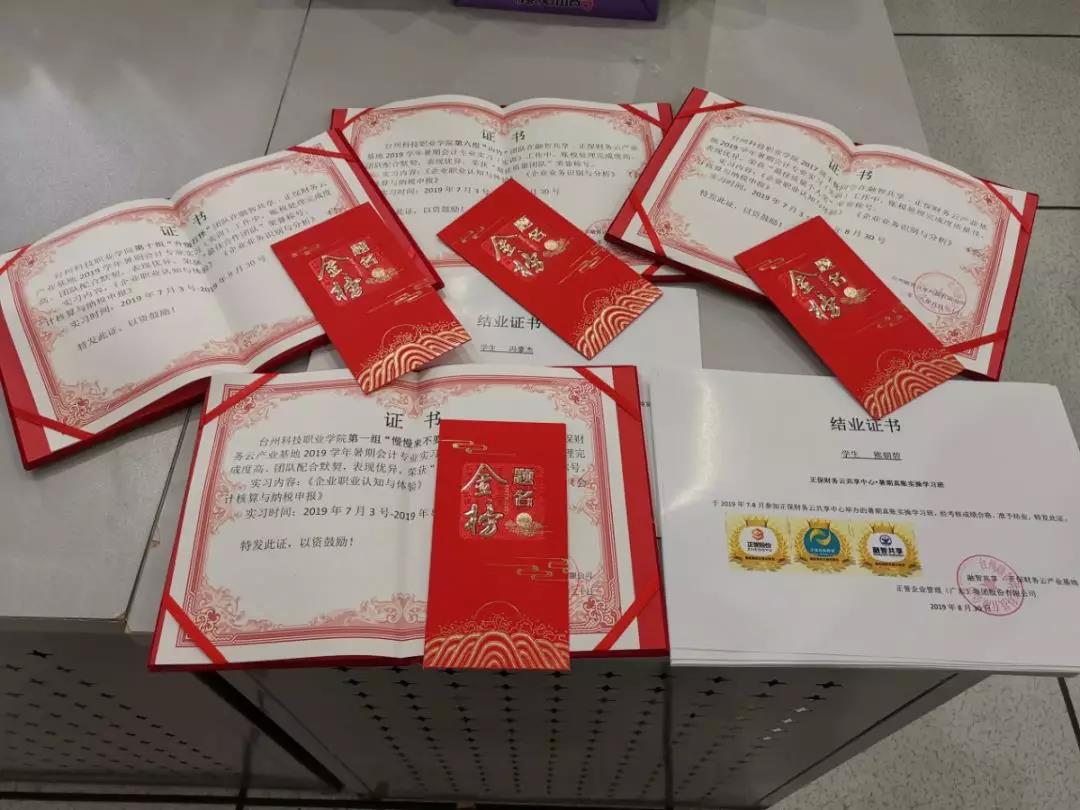 证 书
台州科技职业学院第六组
团队在融智共享、正保财务云产业
基地2019学年暑期会计专业实习(实训)工作中,账模处理完成度高、
团队配合默契,表现优异,荣获
荣誉称号。
实习内容:《企业职业认知与体验》
《企业业务识别与分析》
核算与纳税申报》
实习时间:2019年7月3
30号
特发此证,以资鼓励!
证 书
台州科技职业学院2017
基地2019学年暑期会计专业实习(实训)工作中,账模处理完成度质量佳、
表现优异,荣获
实习内容:《企业职业认知与体验》
《企业业务识别与分析》
核算与纳税申报》
实习时间:2019年7月3
8月30号
特发此证,以资鼓励!
证 书
台州科技职业学院第十组
团队在融智共享、正保财务云
产业基地2019学年暑期会计专业实习(实训)工作中,账模处理完成度
高、团队配合默契,表现优异,荣获“最佳合作团队”荣誉称号。
实习内容:《企业职业认知与体验》
《企业业务识别与分析》
计核算与纳税申报》
实习时间:2019年7月3号-2019年8月30号
特发此证,以资鼓励!
金榜
题名
金榜
题名
金榜
题名
结业证书
学生
证 书
台州科技职业学院第一组“慢慢来不要
保财
务云产业基地2019学年暑期会计专业实习
理完
成度高、团队配合默契,表现优异,荣获
号。
实习内容:《企业职业认知与体验》
《会
计核算与纳税申报》
实习时间:2019年7月3号-2019年8
特发此证,以资鼓励!
限公司
金榜
题名
结业证书
学生
正保财务云共享中心·暑期真账实操学习班
于2019年7-8月参加正保财务云共享中心举办的暑期真账实操学习班,经考核成绩合格,准予结业,特发此证。
正保股份
融智共享
融智共享
正保财务云产业基地
正誉企业管理(广东)集团股份有限公司
2019年8月30日